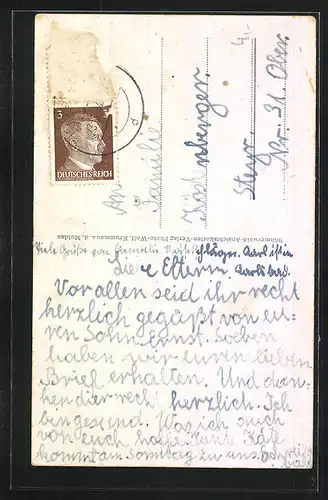 3
DEUTSCHES REICH
d
An
Familie
Steyr.
Nr. 31 Ober.
Böhmerwald-Ansichtskarten-Verlag Photo-Wolf, Krummau a. d. Moldau
Viele Grüße von Familie
Liebe Eltern. Karlsbad.
Vor allen seid ihr recht
herzlich gegüßt von eu-
ren Sohn Ernst. Soeben
haben wir euren lieben
Brief erhalten. Und dan-
ken dier recht herzlich. Ich
bin gesund. Was ich auch
von euch hoffe. Tante
kommt am Sonntag zu uns.